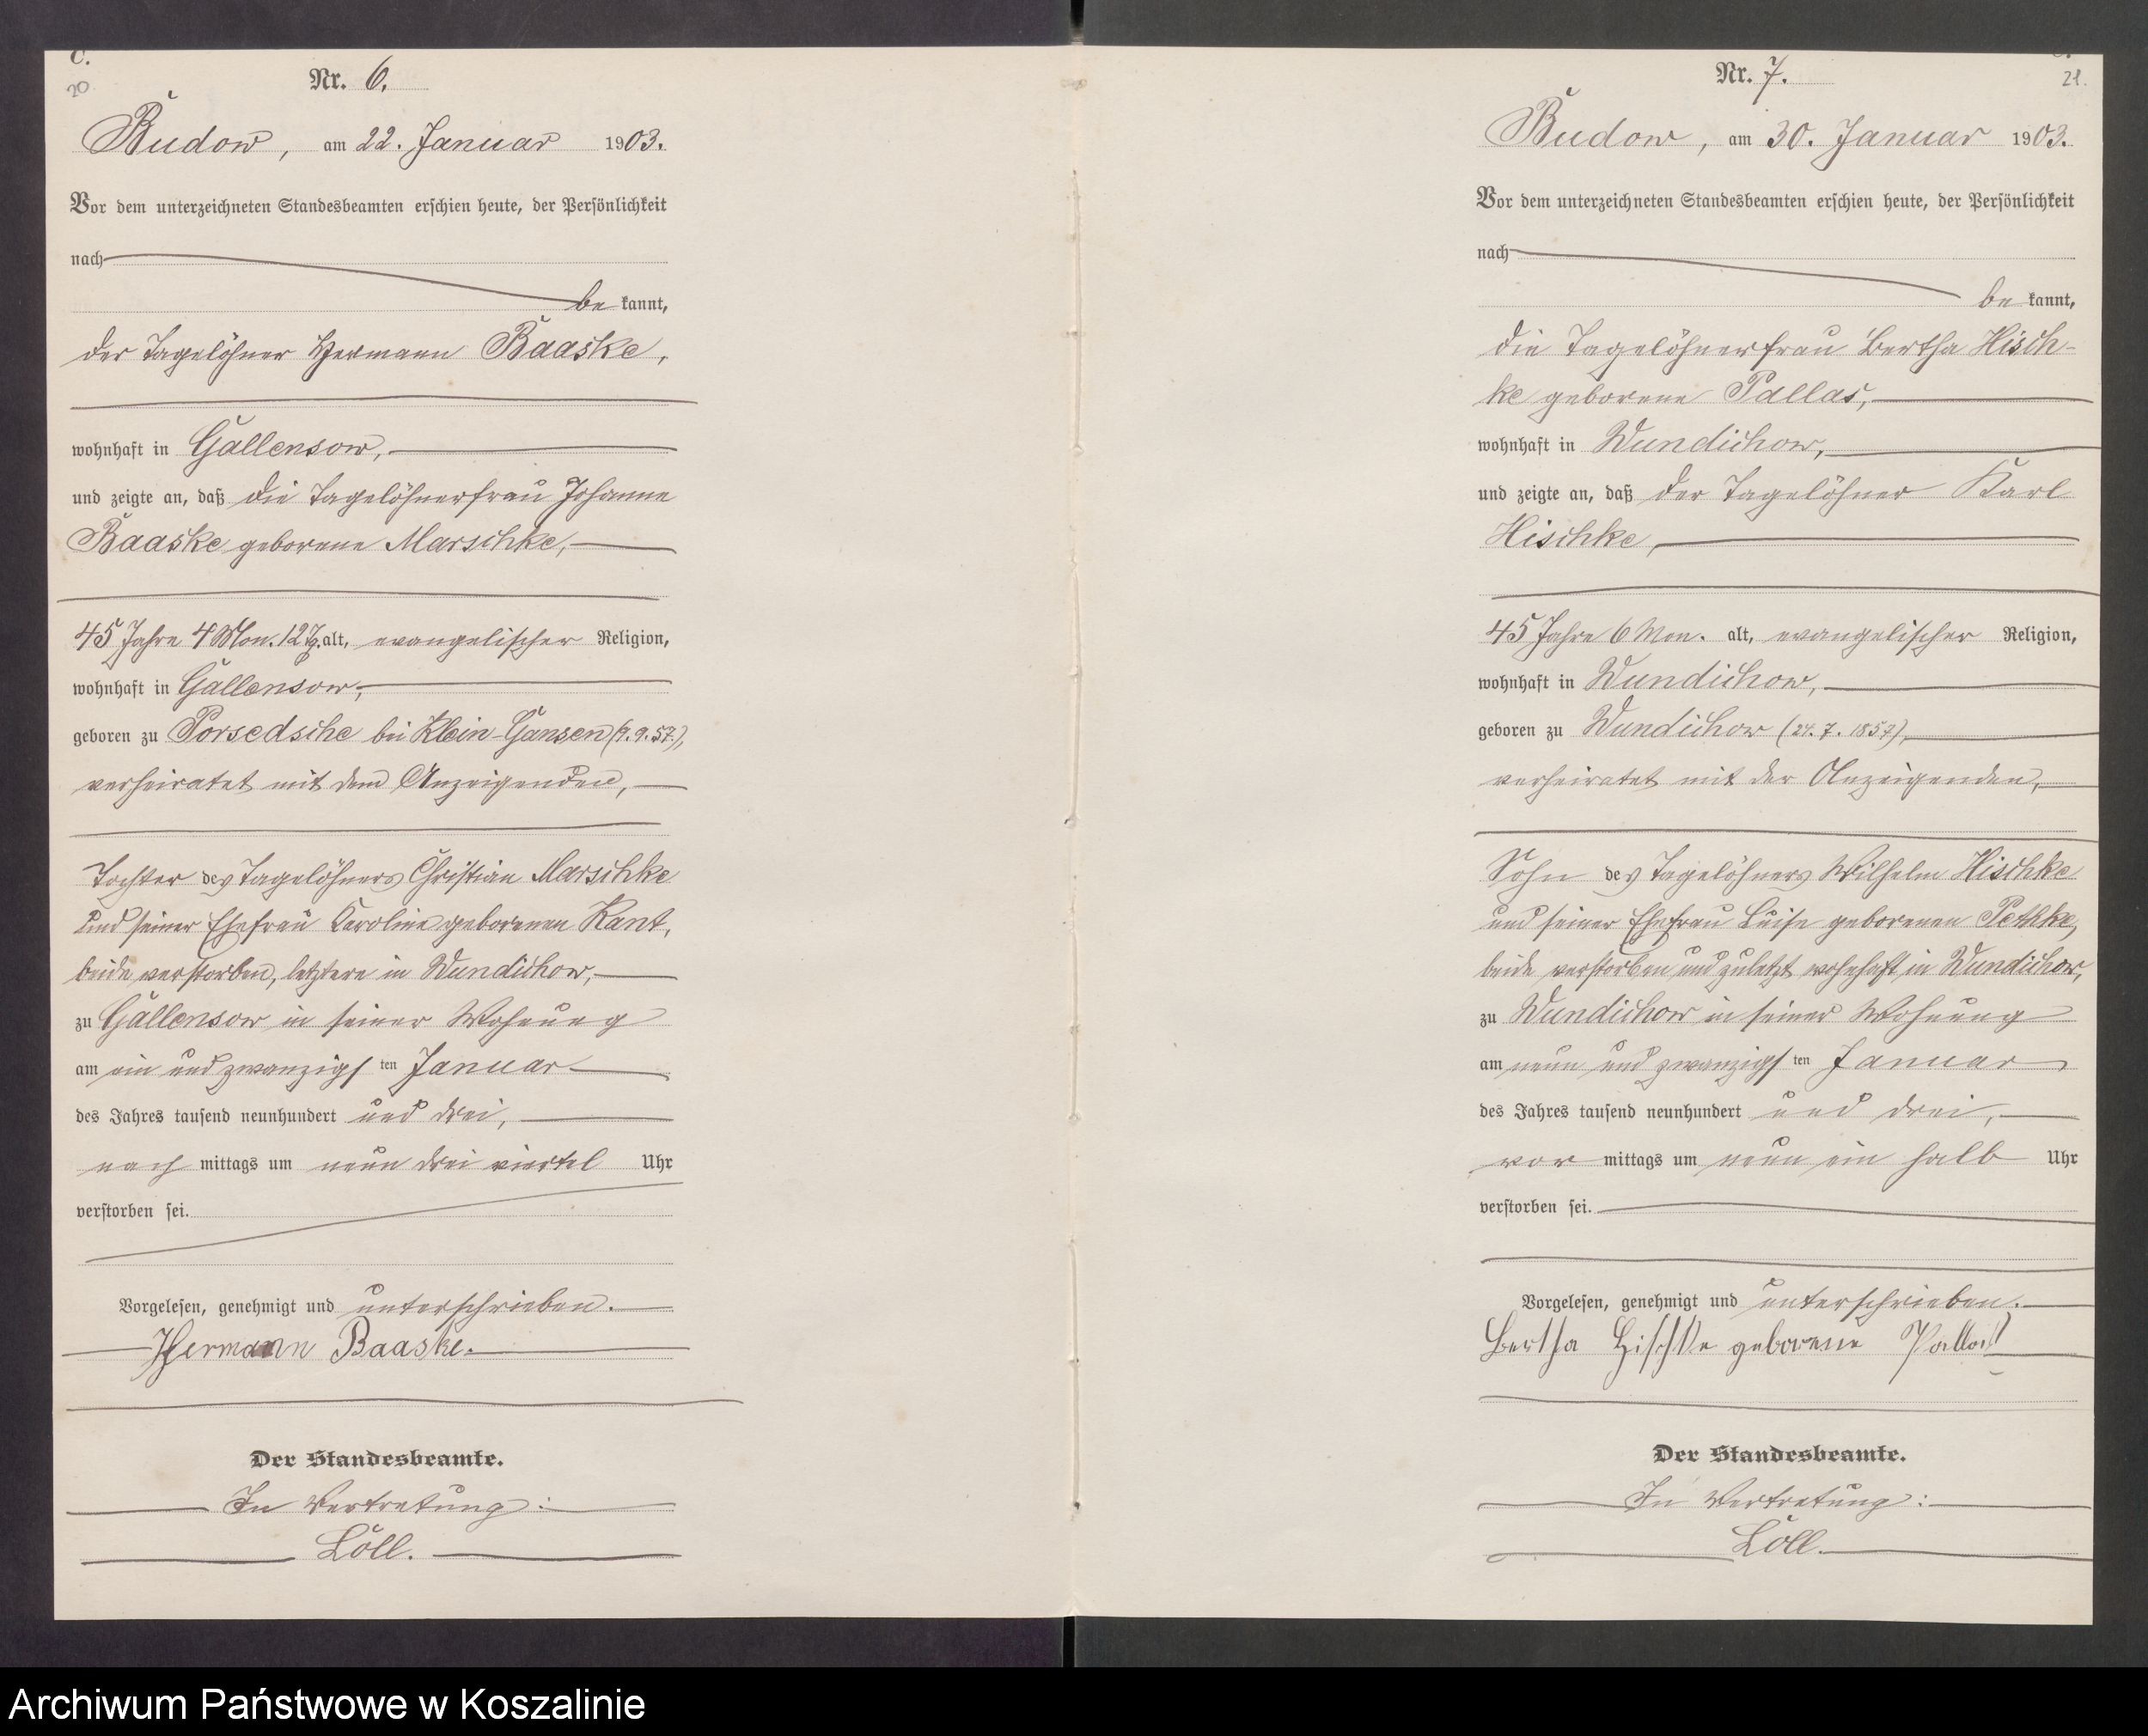 C.
20
Nr. 6.
Budow, am 22. Januar 1903.
Vor dem unterzeichneten Standesbeamten erschien heute, der Persönlichkeit
nach
be kannt,
der Tagelöhner Hermann Baaske,
wohnhaft in Gallensow,
und zeigte an, daß die Tagelöhnerfrau Johanne
Baaske geborene Marschke,
45 Jahre 4 Mon. 12 Tg. alt, evangelischer Religion,
wohnhaft in Gallensow,
geboren zu Porsedsche bei Klein-Gansen (9. 9. 57.),
verheiratet mit dem Anzeigenden,
Tochter des Tagelöhners Christian Marschke
und seiner Ehefrau Karoline geborenen Kant,
beide verstorben, letztere in Wundichow,
zu Gallensow in seiner Wohnung
am ein und zwanzigs ten Januar
des Jahres tausend neunhundert und drei,
nach mittags um neun drei viertel Uhr
verstorben sei.
Vorgelesen, genehmigt und unterschrieben.
Hermann Baaske.
Der Standesbeamte.
In Vertretung:
Löll.
21.
Nr. 7.
Budow, am 30. Januar 1903.
Vor dem unterzeichneten Standesbeamten erschien heute, der Persönlichkeit
nach
be kannt,
die Tagelöhnerfrau Bertha Hisch-
ke geborene Pallas,
wohnhaft in Wundichow,
und zeigte an, daß der Tagelöhner Karl
Hischke,
45 Jahre 6 Mon. alt, evangelischer Religion,
wohnhaft in Wundichow,
geboren zu Wundichow (24. 7. 1857),
verheiratet mit der Anzeigenden,
Sohn des Tagelöhners Wilhelm Hischke
und seiner Ehefrau Luise geborenen Pethke,
beide verstorben und zuletzt wohnhaft in Wundichow,
zu Wundichow in seiner Wohnung
am neun und zwanzigs ten Januar
des Jahres tausend neunhundert und drei,
vor mittags um neun ein halb Uhr
verstorben sei.
Vorgelesen, genehmigt und unterschrieben.
Bertha Hischke geborene Pallas
Der Standesbeamte.
In Vertretung:
Löll.
Archiwum Państwowe w Koszalinie